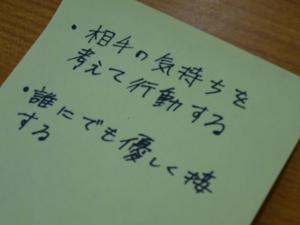 ・相手の気持ちを
考えて行動する
・誰にでも優しく接
する